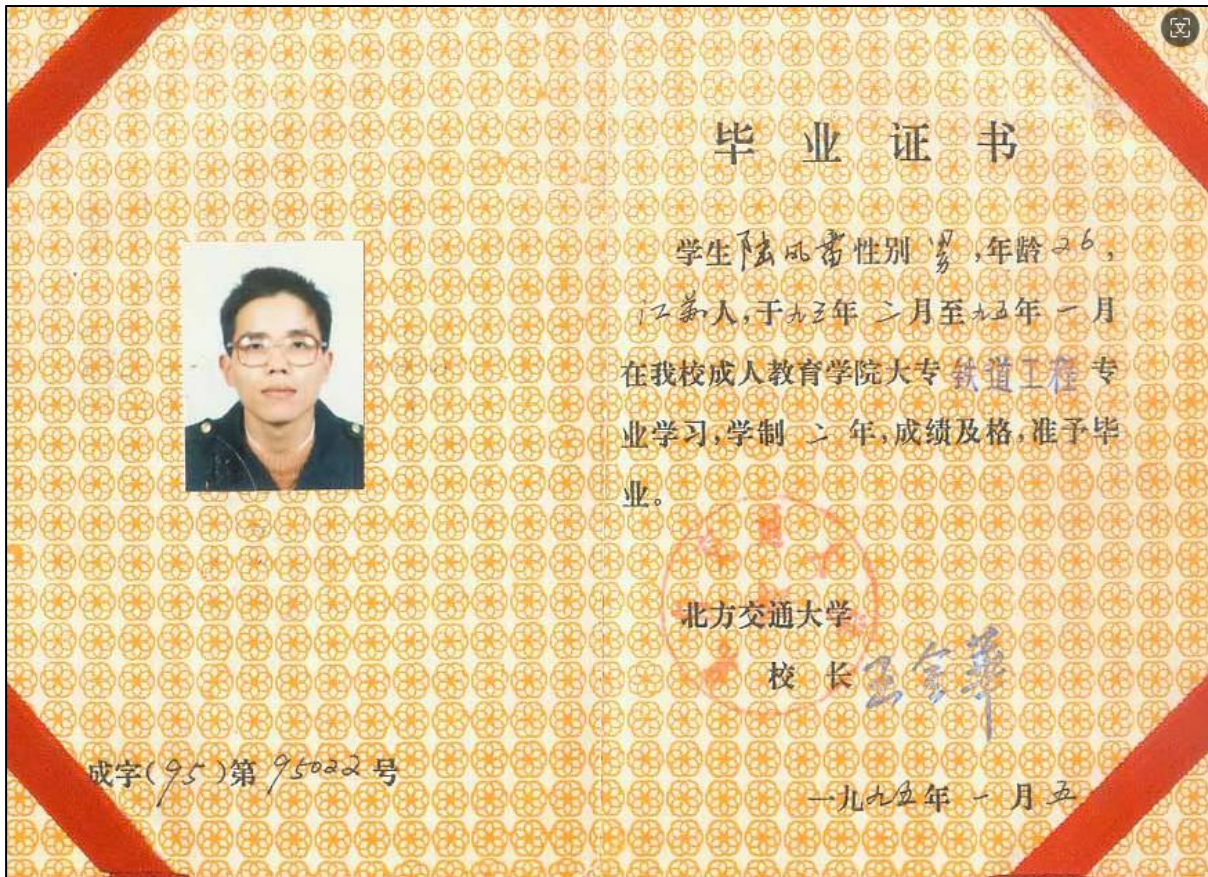 毕业证书
学生陆凤雷性别 男,年龄26,
江苏人,于九三年 二月至九五年 一月
在我校成人教育学院大专 铁道工程 专
业学习,学制 二 年,成绩及格,准予毕
业。
北方交通大学
校 长 王金華
成字(95)第 95022 号
一九九五年 一 月 五